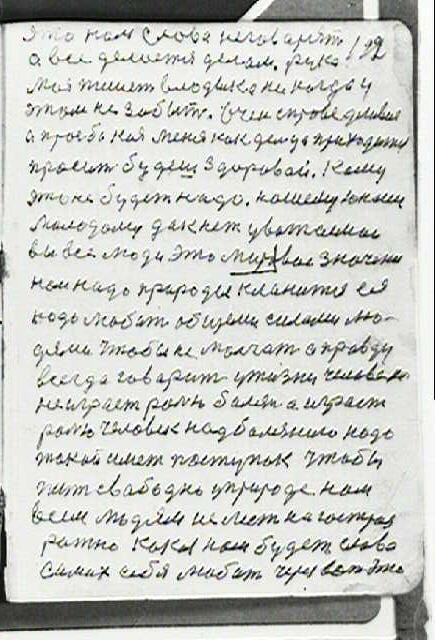 это нам слова неговарят 122
а все делается делам. рука
моя пишет владыка не когда у
этом не забыт. Очен справедливая
а прозьба как меня как до приходится
просит будеш здоровай. Кому
это не будет надо. нашему юноши
молодому дак нет уважаемои
вы все люди это мировое значения
нам надо природе кланится ея
надо любит общеми силами лю-
дями чтобы не молчат а правду
всегда говарит у жизни человека
не играет ролю болезн а играет
ролю человек над болезнию надо
такой имет поступок чтобы
жит свабодно у природе. нам
всем людям не лест на
ратно какая нам будет слава
самих себя любат через вот это